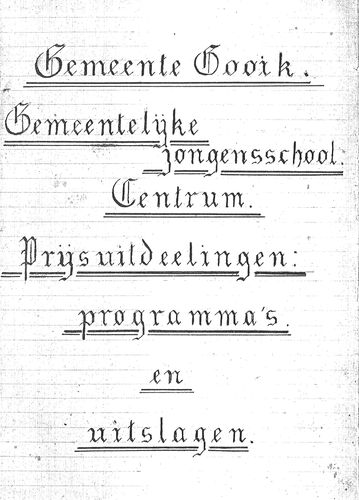 Gemeente Gooik.
Gemeentelijke
jongensschool.
Centrum.
Prijsuitdeelingen:
programma's
en
uitslagen.